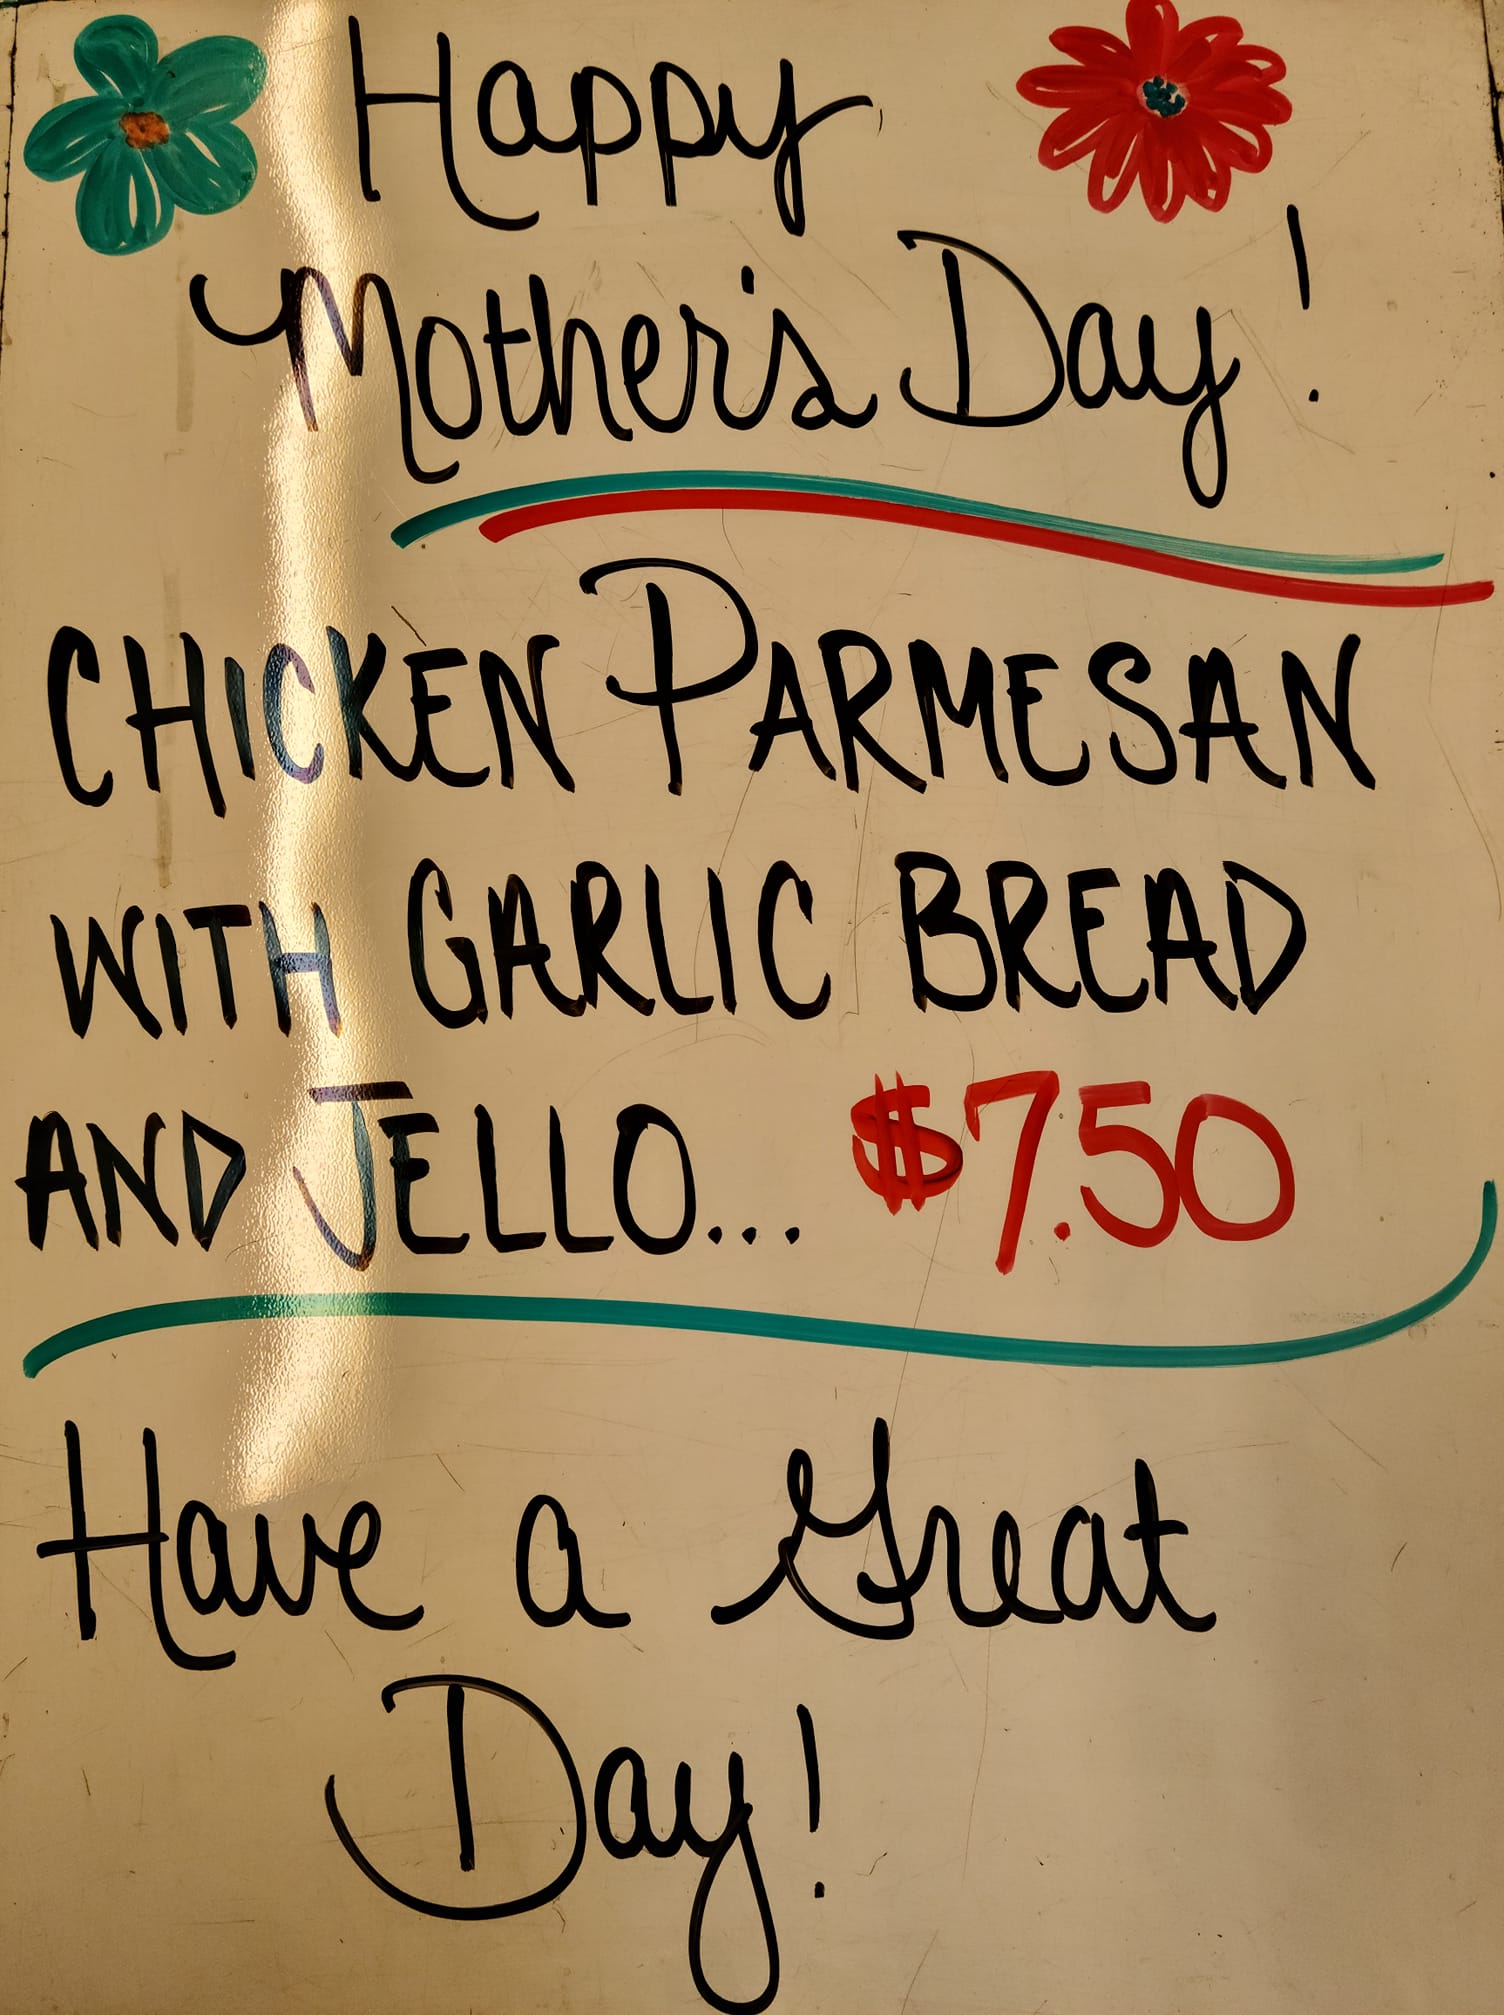 Happy
Mother's Day!
CHICKEN PARMESAN
WITH GARLIC BREAD
AND JELLO... $7.50
Have a Great
Day!